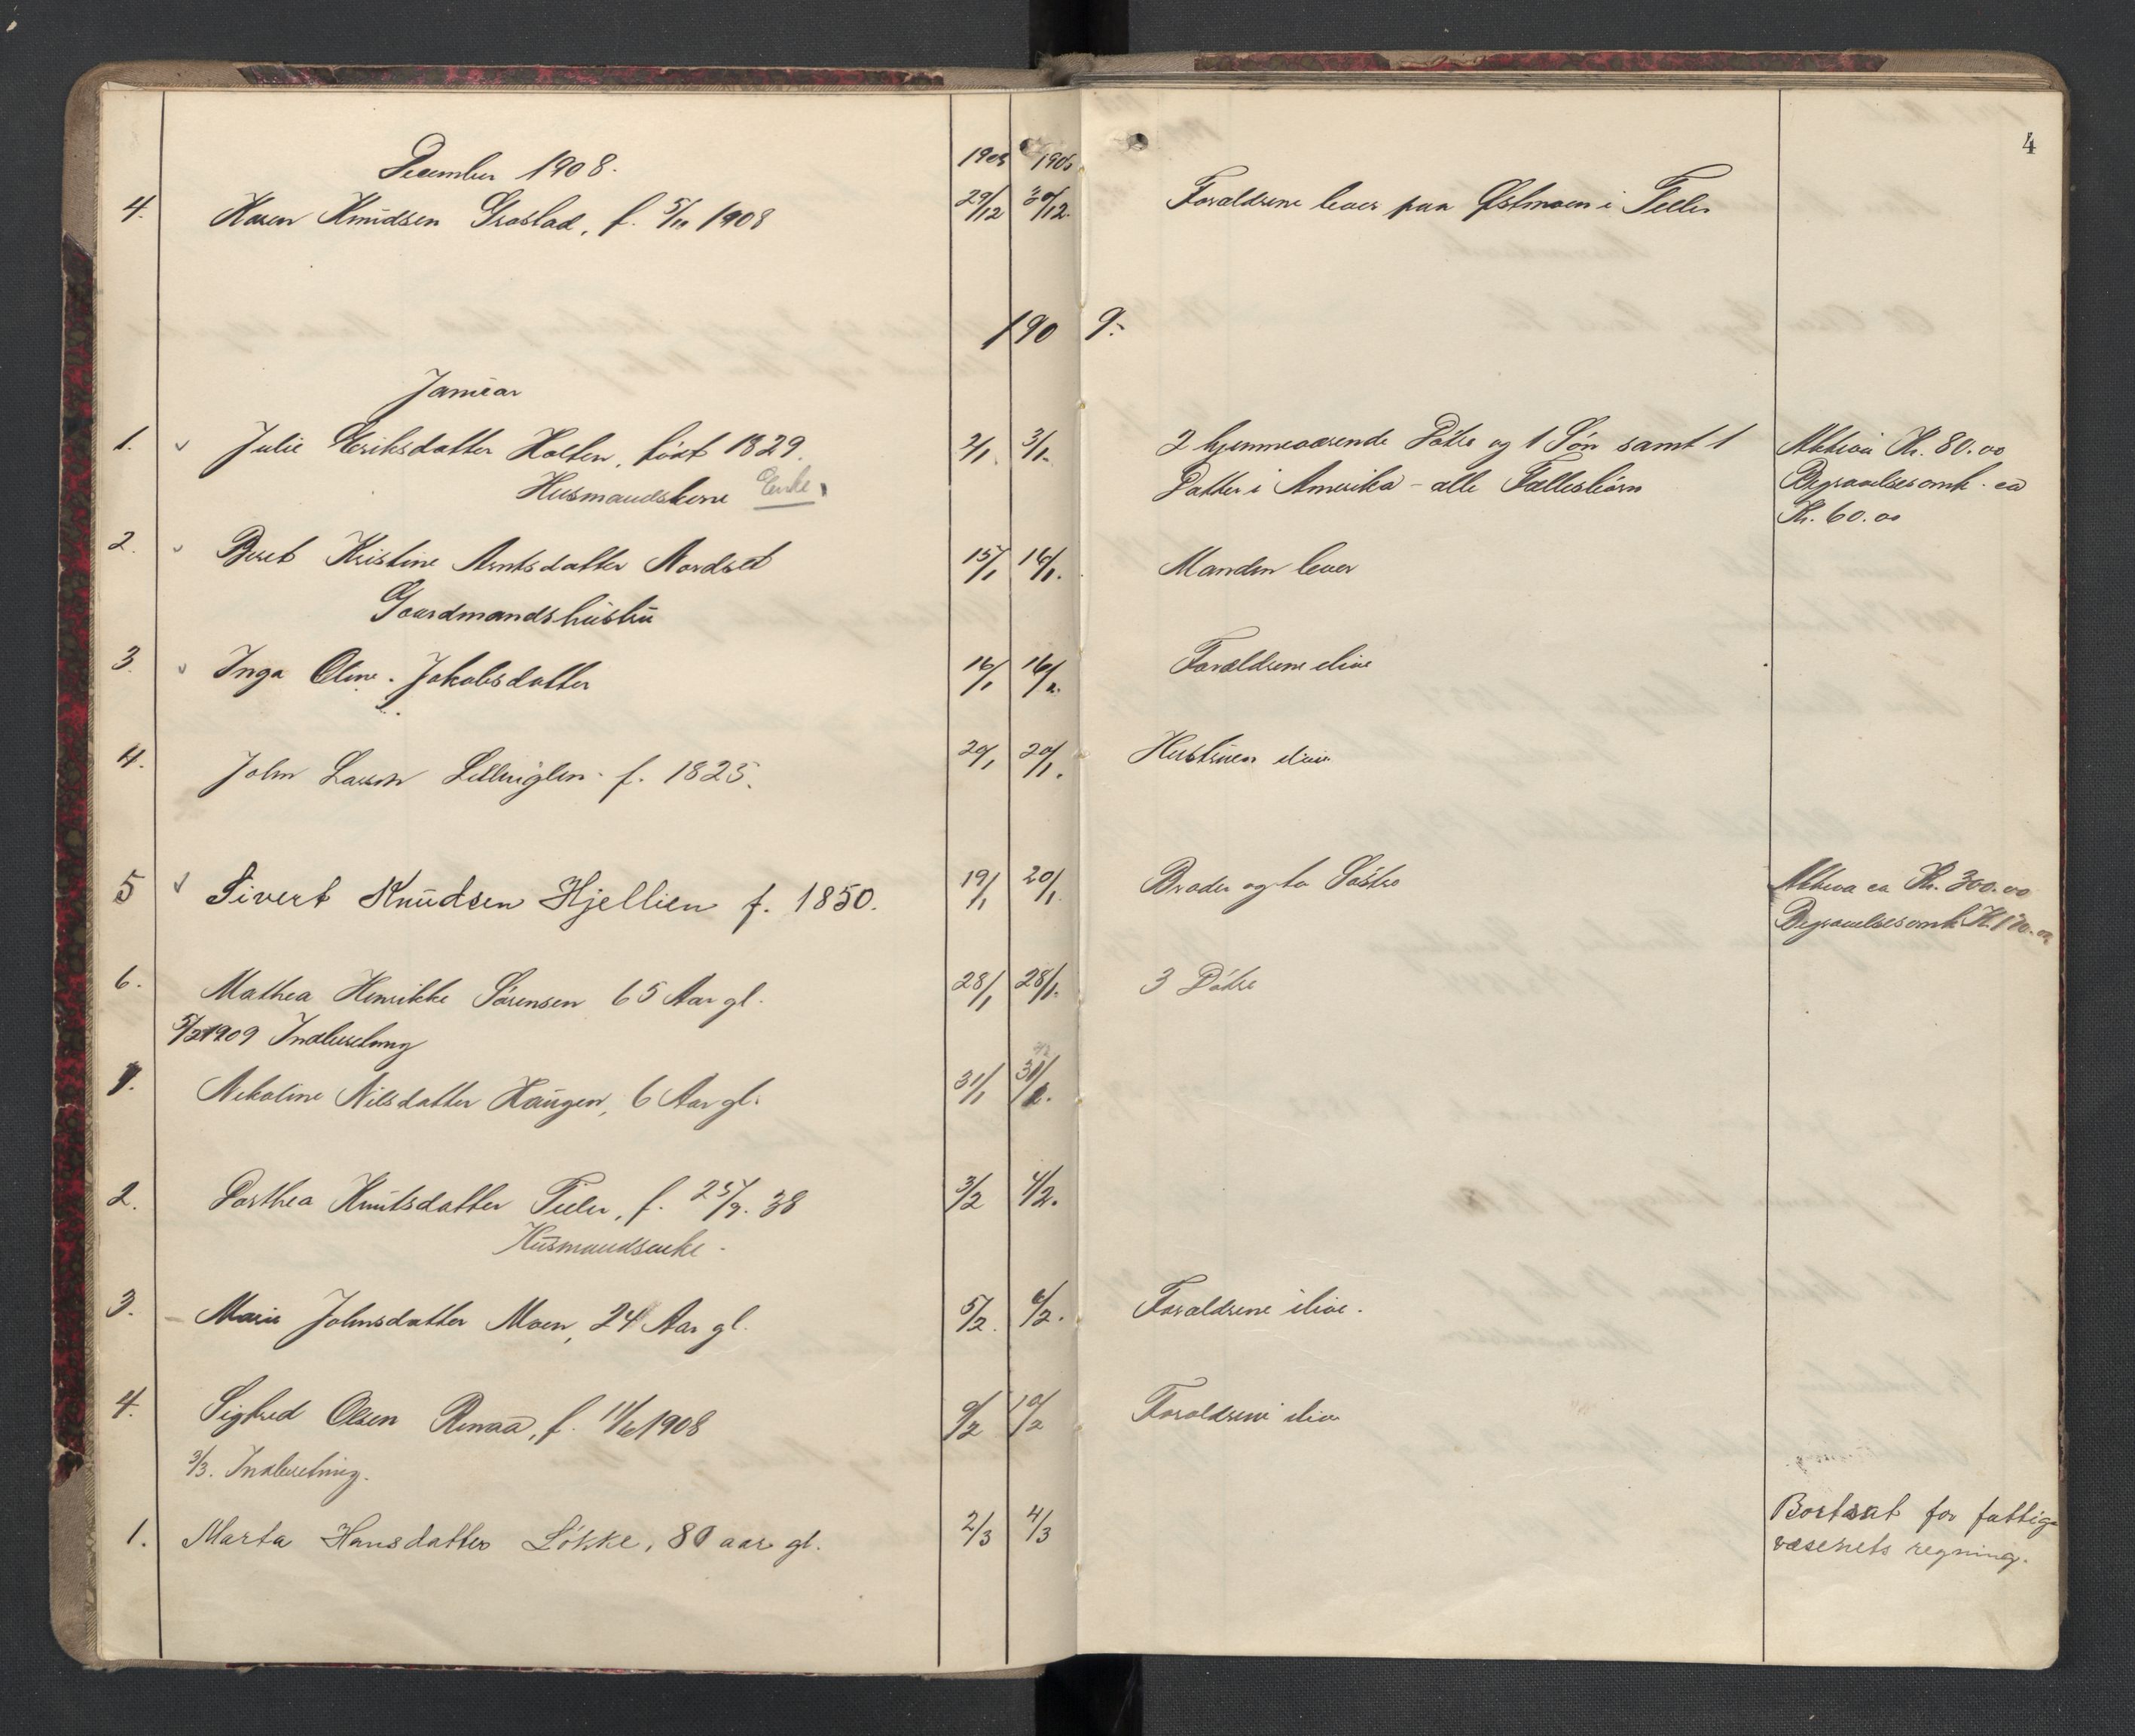 4
December 1908.
1908 1908
4. Karen Knudsen Grostad, f. 5/11 1908 29/12 30/12. Forældrene lever paa Østmoen i Tiller
1909.
Januar
1. Julie Eriksdatter Holten, født 1829. 2/1. 3/1. 2 hjemmeværende Døtre og 1 Søn samt 1 Aktiva Kr. 80.00
Husmandskone Enke. Datter i Amerika – alle Fællesbørn Begravelsesomk. ca
Kr. 60.00
2. Beret Kristine Arntsdatter Nordset 15/1 16/1. Manden lever
Gaardmandshustru
3. Inga Oline Jakobsdatter 16/1 16/1. Forældrene ilive
4. John Larsen f. 1825. 20/1 20/1. Hustruen ilive
5 Sivert Knudsen Hjellien f. 1850. 19/1 20/1 Broder og to Søstre Aktiva ca Kr. 300.00
Begravelsesomk. Kr. 100.00
6. Mathea Henrikke Sørensen 65 Aar gl. 28/1 28/1. 3 Døtre
5/2 1909 Indberetning
1. Nekoline Nilsdatter Haugen, 6 Aar gl. 31/1 31/1.
2. Dorthea Knutsdatter Tiller, f. 25/9. 38 3/2 4/2.
Husmandsenke.
3. Marie Johnsdatter Moen, 24 Aar gl. 5/2. 6/2. Forældrene ilive.
4. Sigfred Olsen Renaa, f. 11/6 1908 9/2 10/2 Forældrene ilive
3/3. Indberetning.
1. Marta Hansdatter Løkke, 80 aar gl. 2/3 4/3 Bortsat for fattig-
væsenets regning.